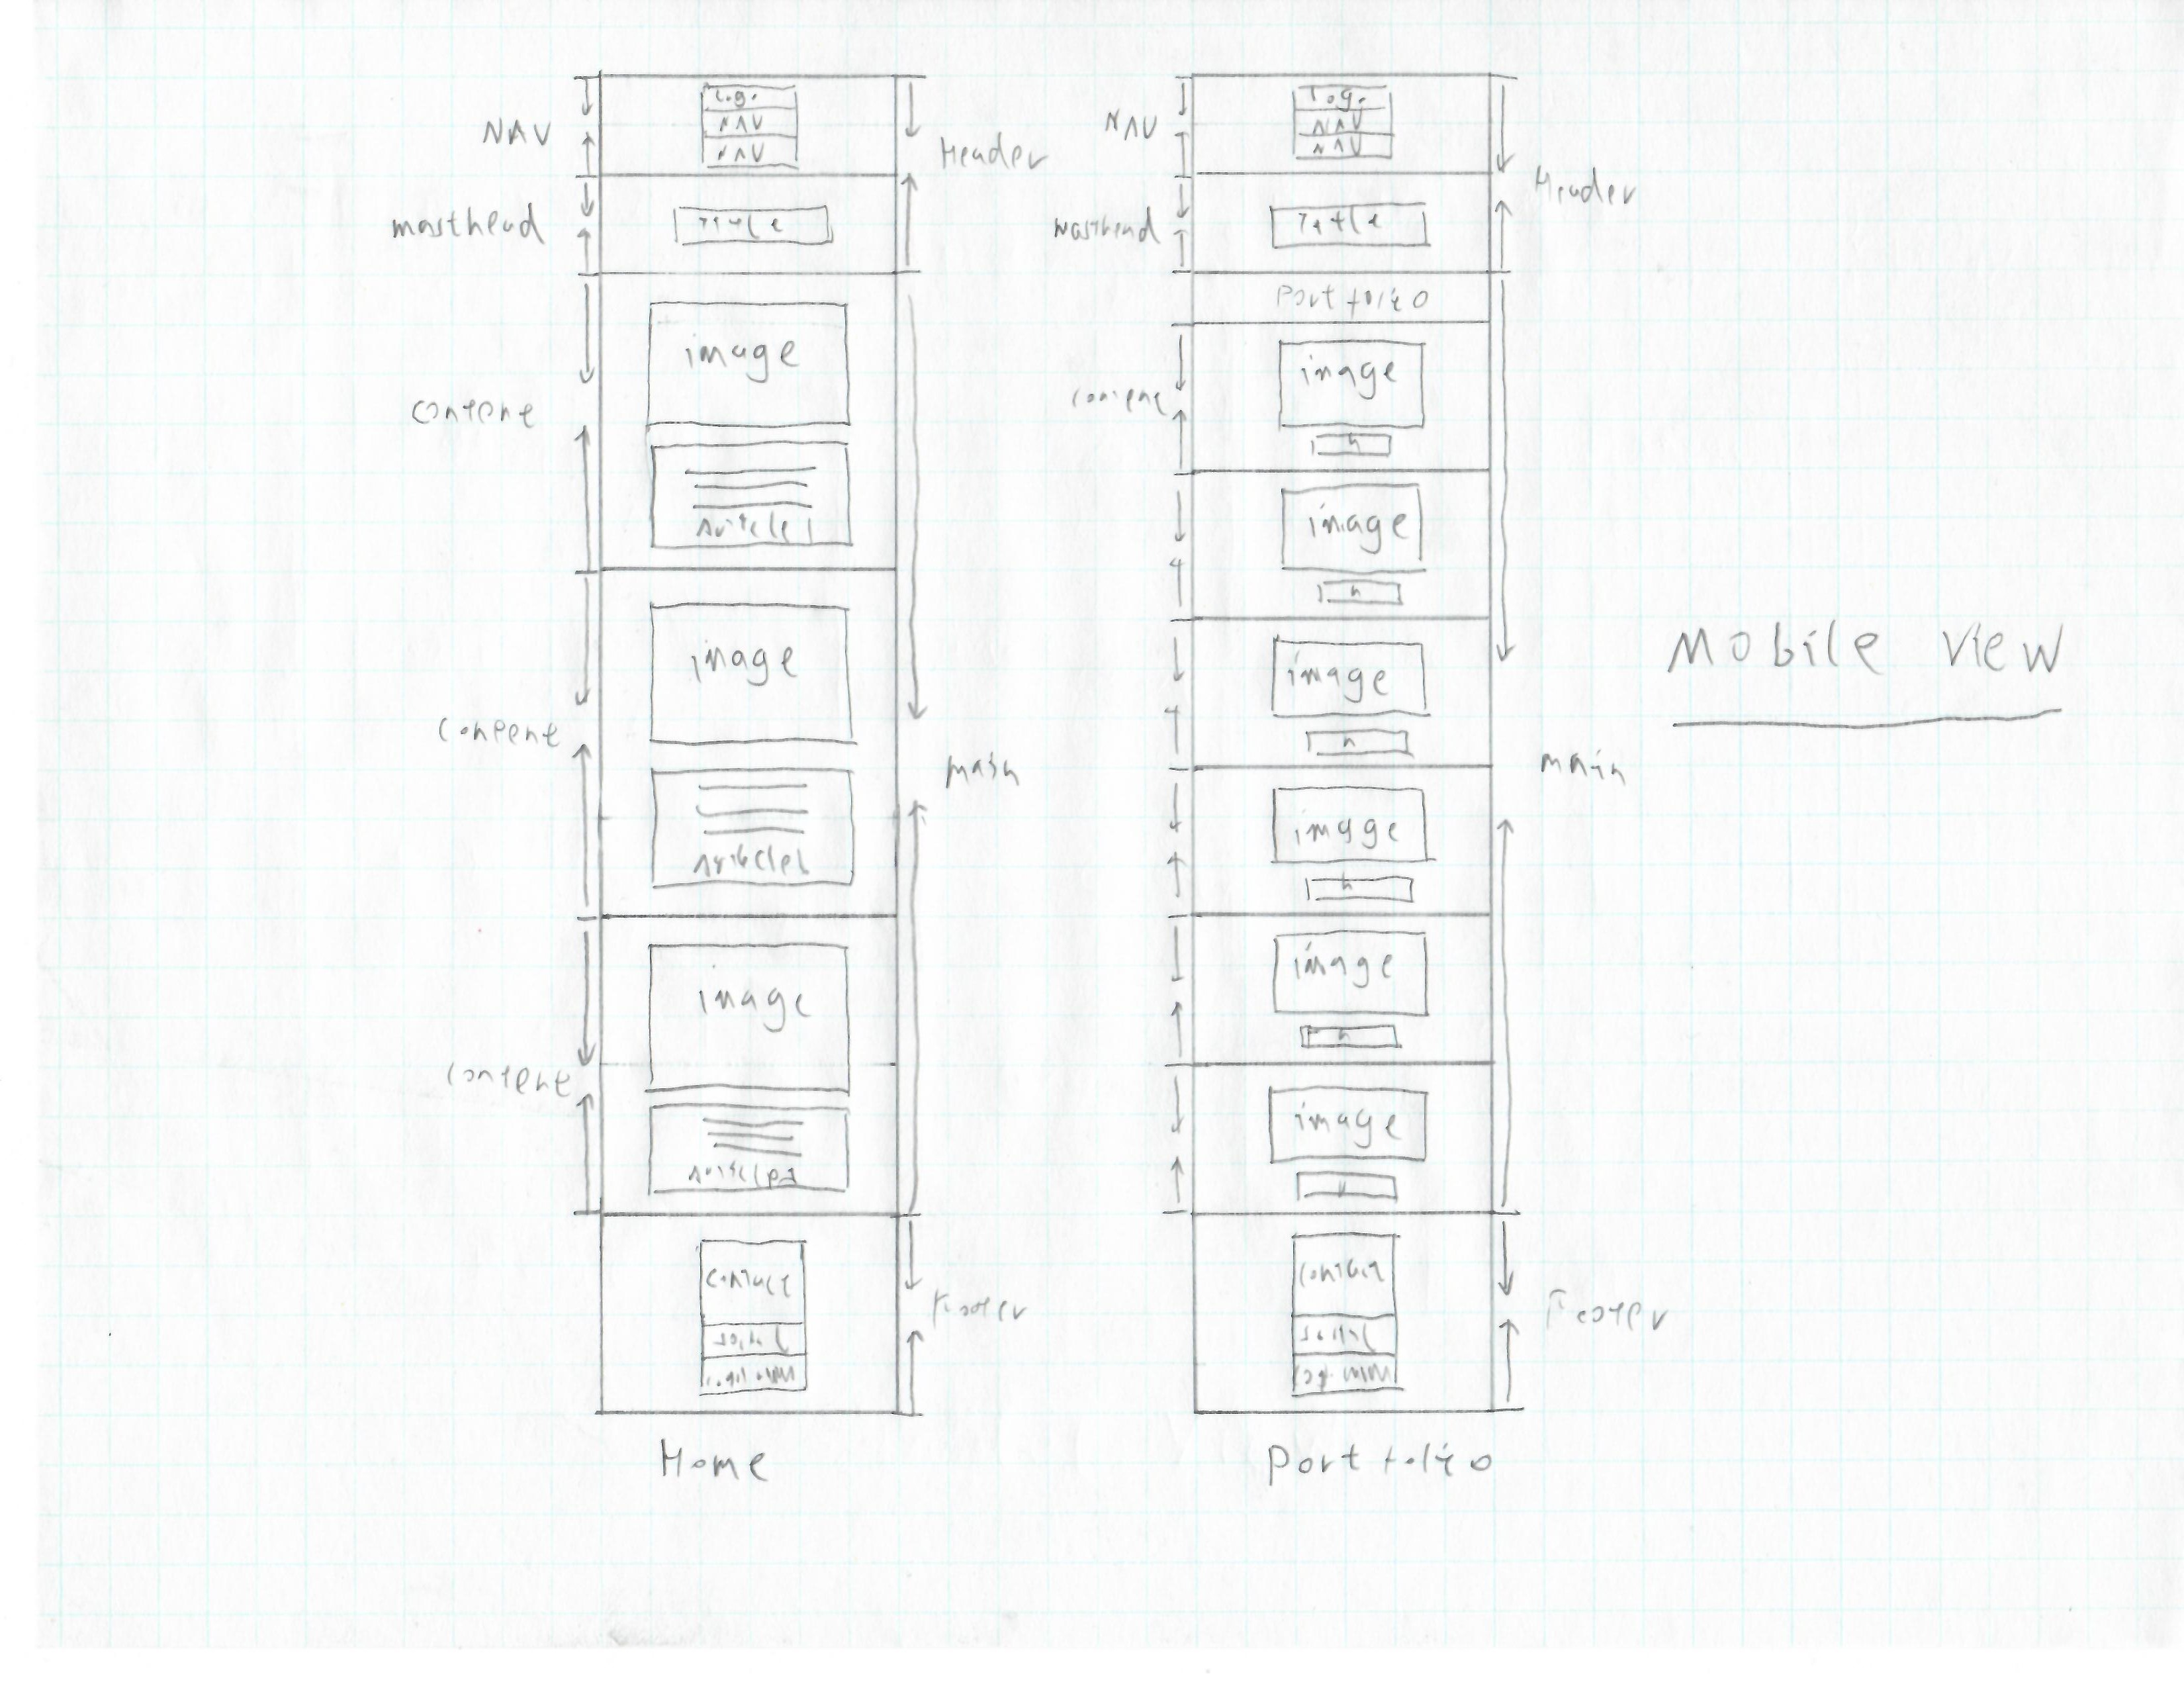 Logo
NAV
NAV
NAV
Header
masthead
Title
image
Content
Article 1
image
Content
main
Article
image
Content
Article
Contact
Social
Footer
Home
Logo
NAV
NAV
NAV
Header
masthead
Title
Portfolio
image
Content
h
image
h
image
h
main
image
h
image
h
image
Contact
Social
Footer
Portfolio
Mobile View